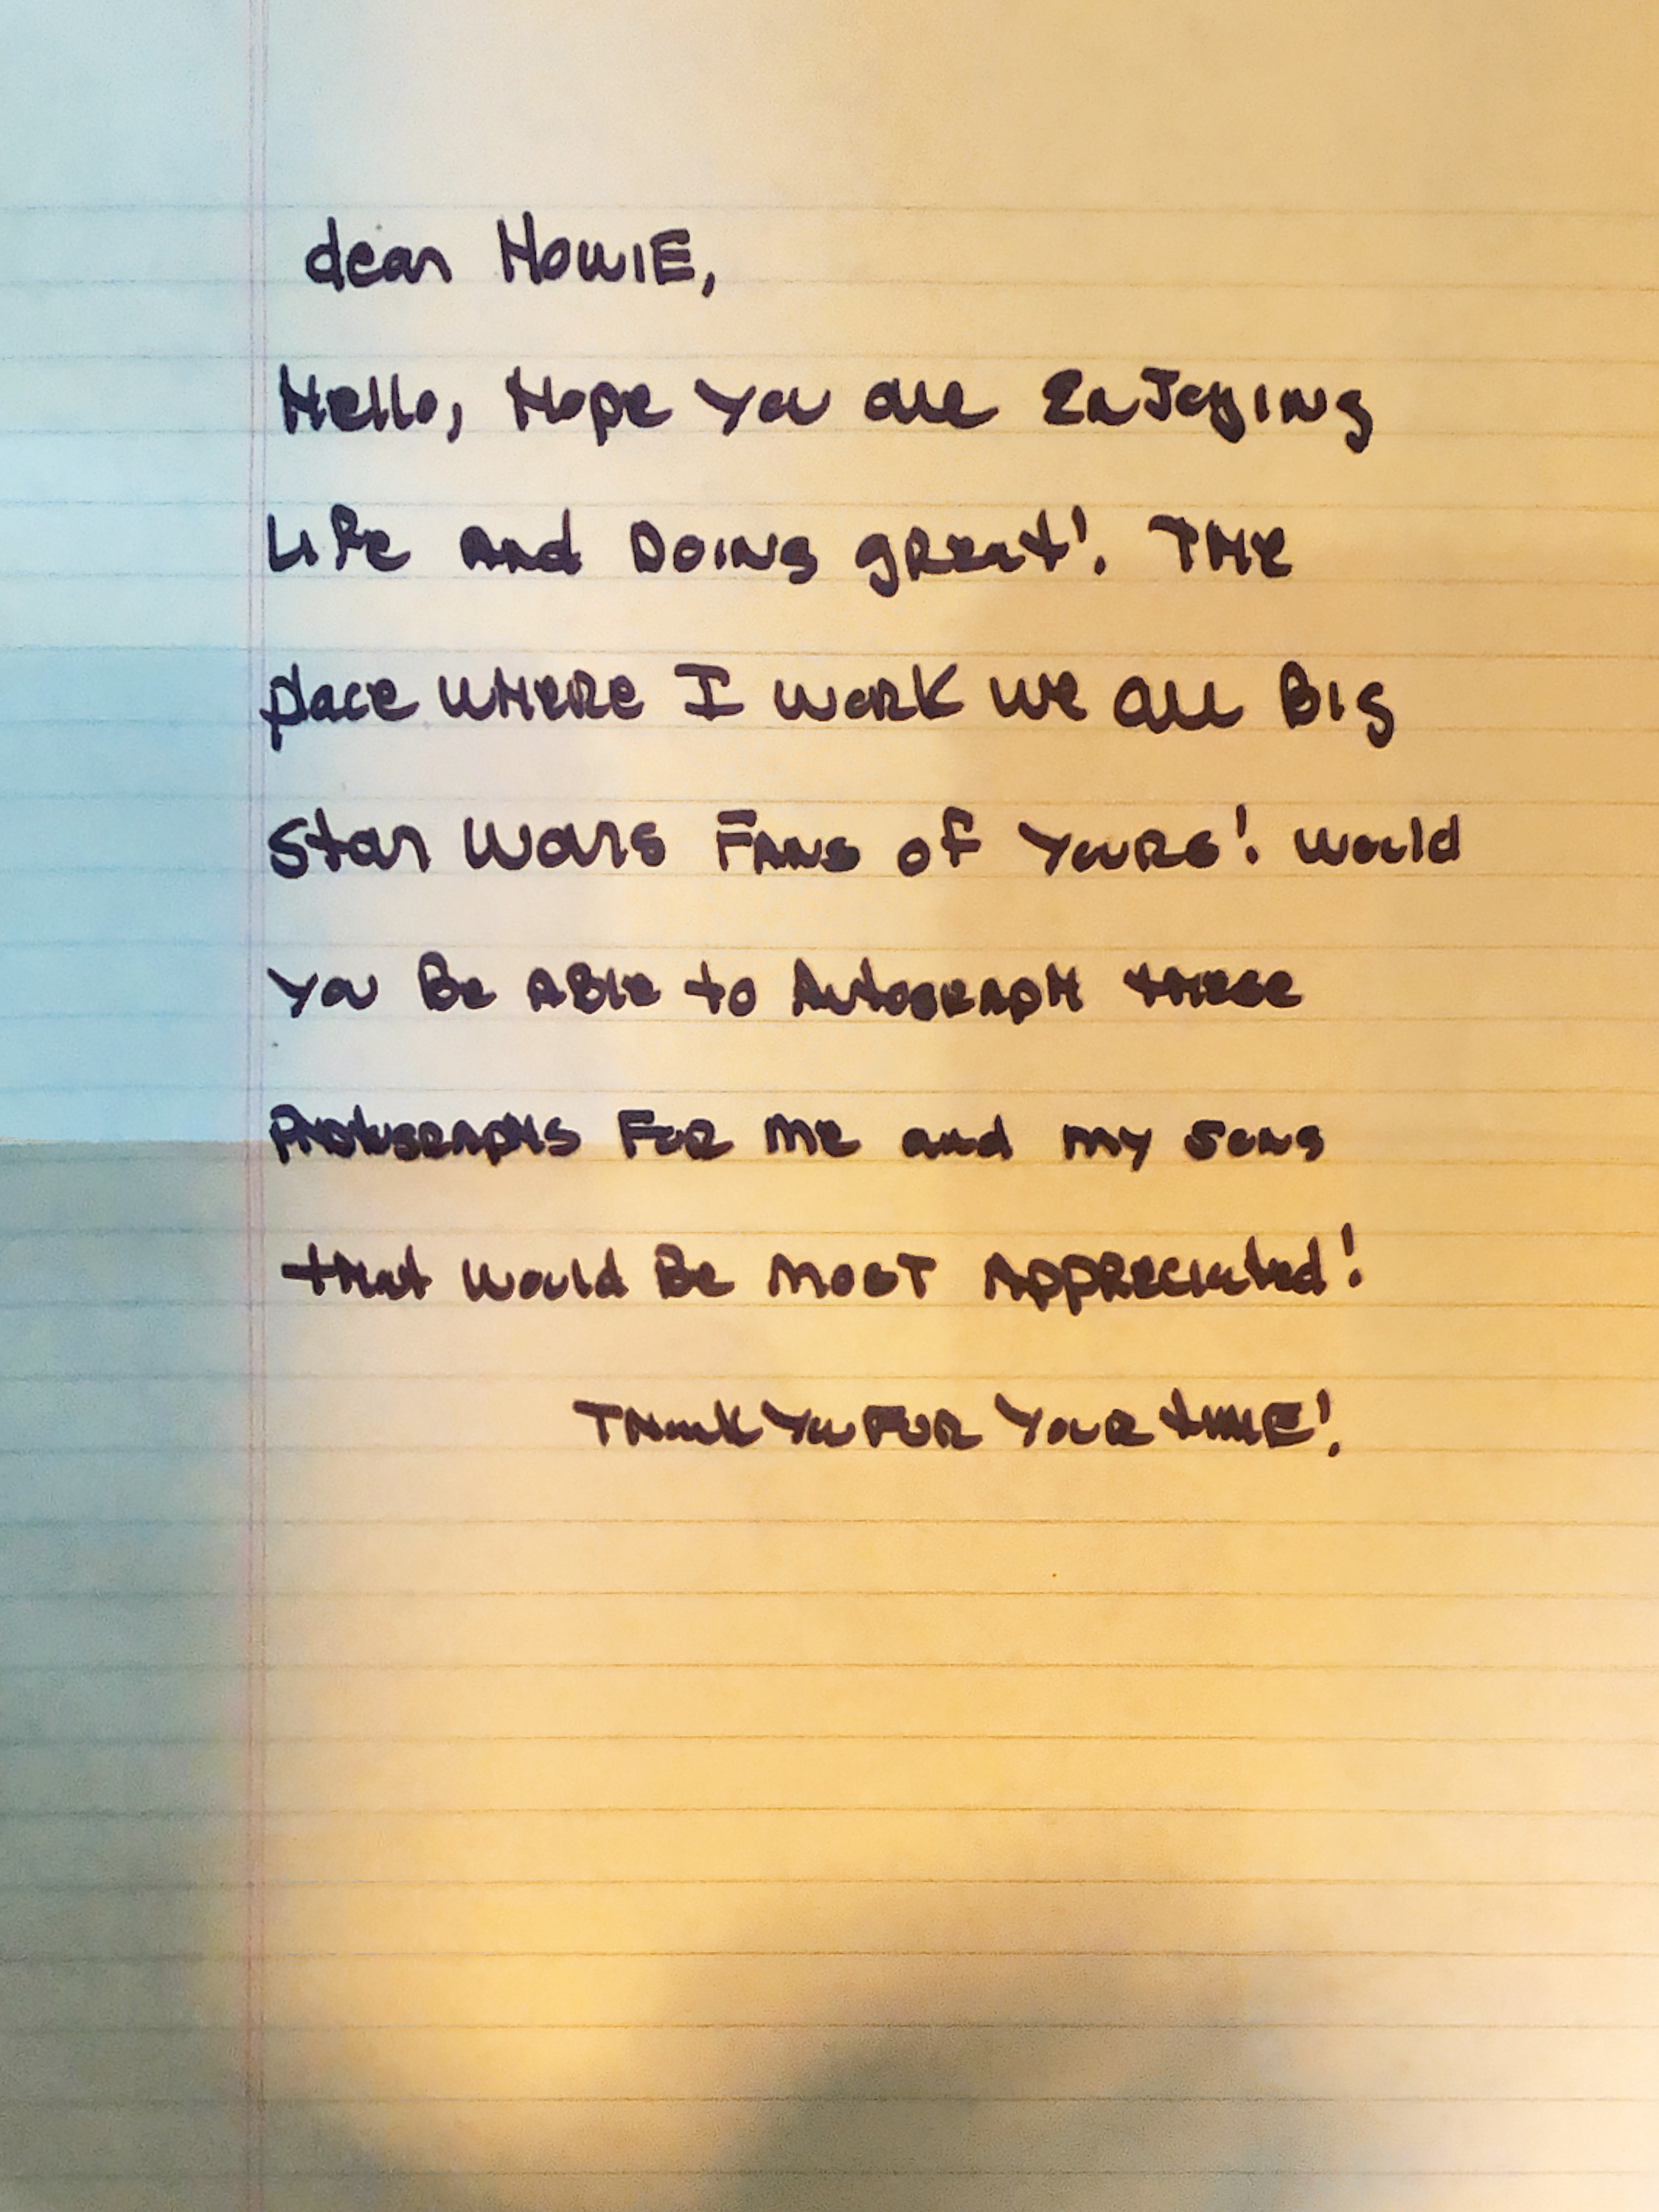 dear HowIE,
Hello, Hope You are EnJoying
LiFe And DOING gReat! THe
place WHeRe I woRK We all BIg
Star Wars FANS oF YouRs! would
You Be ABle to AutoGRApH these
PHotoGRApHs FoR Me and my sons
tHat would Be MosT AppReciated!
THank You FOR YouR timE!